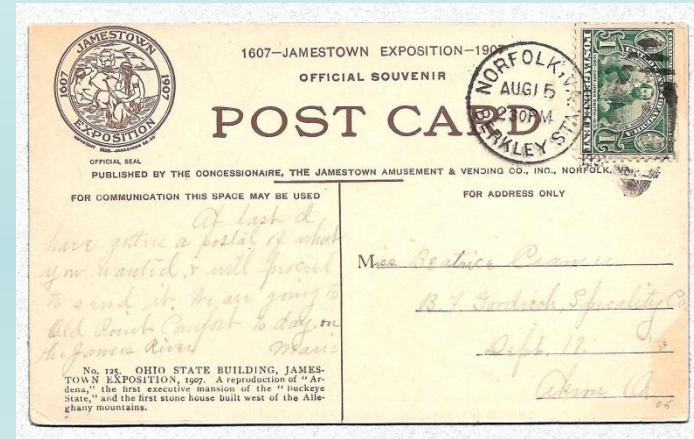 JAMESTOWN
1607
1907
EXPOSITION
OFFICIAL SEAL
1607—JAMESTOWN EXPOSITION—1907
OFFICIAL SOUVENIR
POST CARD
NORFOLK, VA.
AUG 15
2 30 PM
BERKLEY STA.
1 1
PUBLISHED BY THE CONCESSIONAIRE, THE JAMESTOWN AMUSEMENT & VENDING CO., INC., NORFOLK,
FOR COMMUNICATION THIS SPACE MAY BE USED
At last I
have gotten a postal of what
you wanted & will proceed
to send it. We are going to
Old Point Comfort to day on
the James River Marie
No. 125. OHIO STATE BUILDING, JAMES-
TOWN EXPOSITION, 1907. A reproduction of "Ar-
dena," the first executive mansion of the "Buckeye
State," and the first stone house built west of the Alle-
ghany mountains.
FOR ADDRESS ONLY
Miss Beatrice
B. F. Goodrich, Speciality Co
Dept. 17.
Akron O